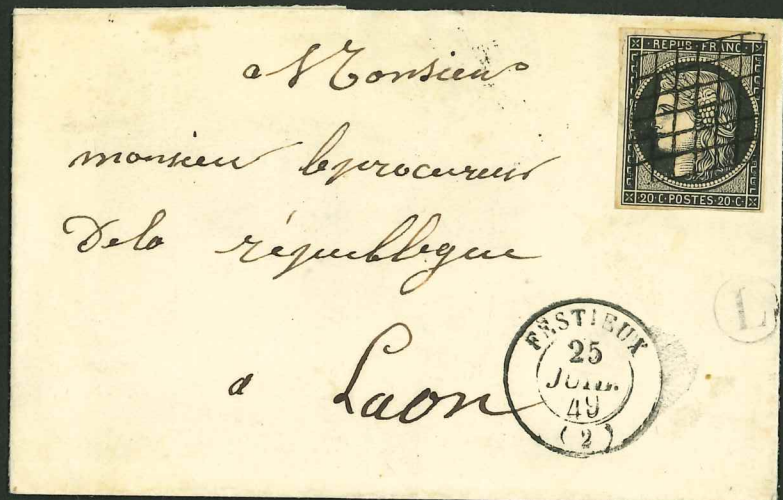 REPUB. FRANC.
20 C. POSTES 20 C.
a Monsieur
monsieur leprocureur
Dela républlque
a Laon
L
FESTIEUX
25
JUIL.
49
(2)